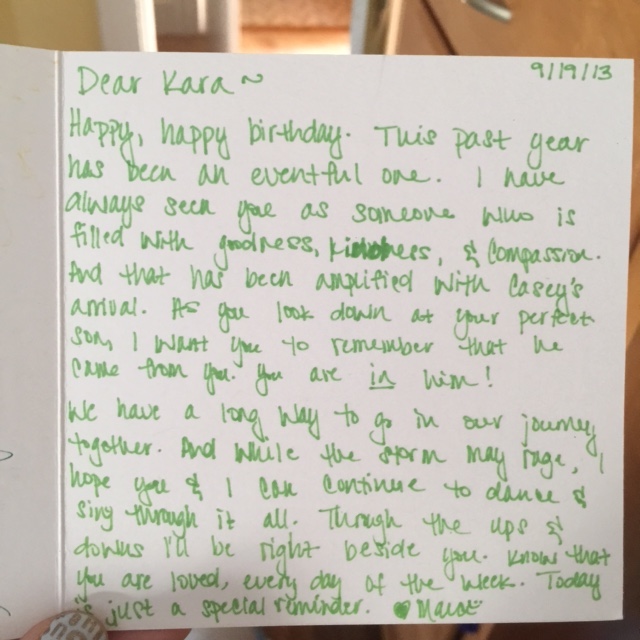 9/19/13
Dear Kara~
Happy, happy birthday. This past year
has been an eventful one. I have
always seen you as someone who is
filled with goodness, kindness, & compassion.
And that has been amplified with Casey's
arrival. As you look down at your perfect
son, I want you to remember that he
came from you. You are in him!
We have a long way to go in our journey
together. And while the storm may rage, I
hope you & I can continue to dance &
sing through it all. Through the ups &
downs I'll be right beside you. Know that
you are loved, every day of the week. Today
is just a special reminder.